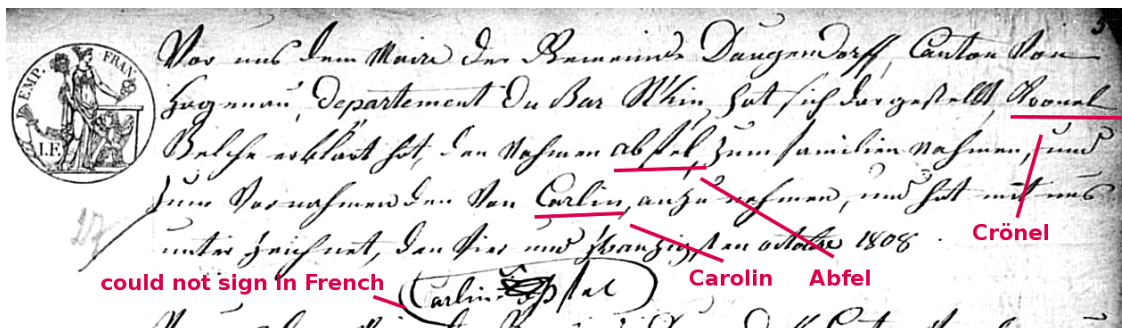 EMP. FRAN.
I.F.
5
Vor uns dem Maire der Gemeinde Daugendorff, Canton Von
Hagenau, departement du Bas Rhin, hat sich dargestellt Kronel
Welche erklärt hat, den Nahmen abfel, zum familien Nahmen, und
zum Vornahmen den Von Carlin, anzu nehmen, und hat mit uns
unter zeichnet, den Vier und zwanzigsten octobre 1808.
27
Crönel
Carolin
Abfel
could not sign in French
Carlin